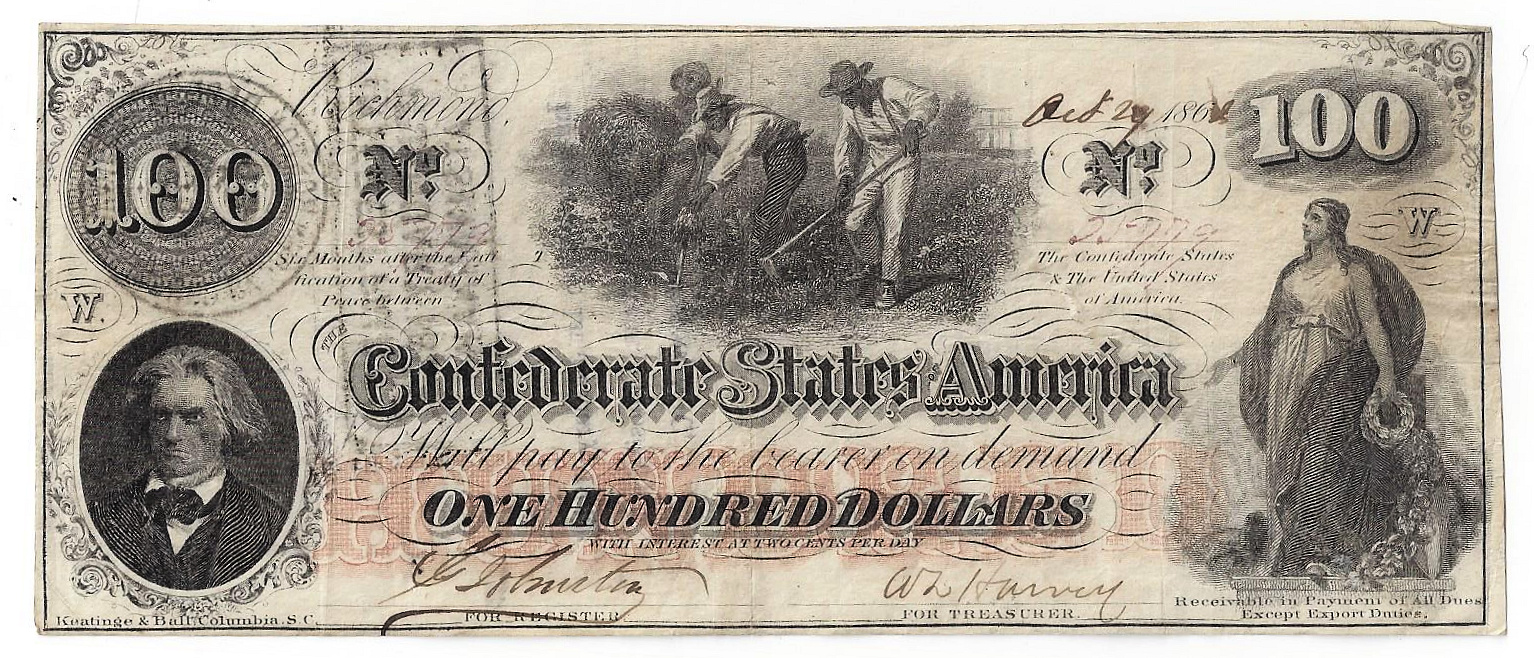 Richmond, Oct 29 1862
100
100
No.
No.
W
Six Months after the Rati
fication of a Treaty of
Peace between
The Confederate States
& The United States
of America.
W.
THE
Confederate States America
Will pay to the bearer on demand
ONE HUNDRED DOLLARS
WITH INTEREST AT TWO CENTS PER DAY
Johnston
Harvey
FOR REGISTER
FOR TREASURER.
Receivable in Payment of All Dues
Except Export Duties.
Keatinge & Ball, Columbia, S.C.